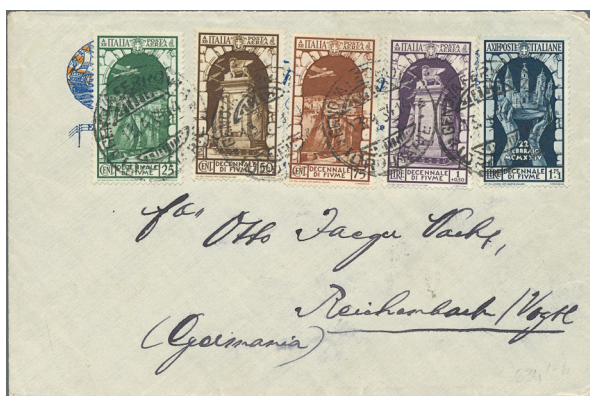 ITALIA POSTA AEREA
CENT 25 DECENNALE DI FIUME
ITALIA POSTA AEREA
CENT 50 DECENNALE DI FIUME
ITALIA POSTA AEREA
CENT 75 DECENNALE DI FIUME
ITALIA POSTA AEREA
LIRE 1 +0,50 DECENNALE DI FIUME
POSTE ITALIANE
22 FEBBRAIO MCMXXIV
LIRE DECENNALE DI FIUME
Otto Jaeger Nachf,
Reichenbach/Vogtl
(Germania)